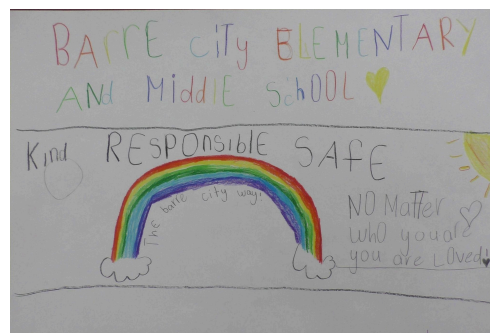 BArrE ciTy ELEMENTARY
ANd MiddlE SchOOL
Kind RESPONSiblE SAfE
The barre city way!
NO Matter
whO you are
you are LOved!